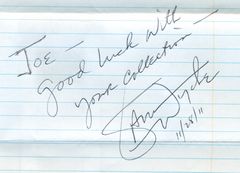 Joe —
Good luck with
your collection —
Sam Wyche
11/28/11